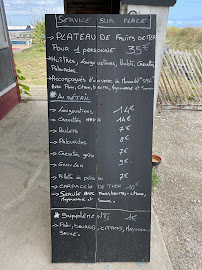 SERVICE SUR PLACE
- PLATEAU DE FRUITS DE MER
POUR 1 PERSONNE 35€
- Huîtres, Langoustines, Bulots, Crevettes
Palourdes
- Accompagnés d'un verre de
Avec Pain, Citron, beurre, mayonnaise et
AU DÉTAIL
- Langoustines 14€
- Crevettes 14€
- Bulots 7€
- Palourdes 8€
- Crevettes grises 7€
9€
- Rillette de poisson 7€
- CARPACCIO DE THON 10€
- Servie avec
mayonnaise et
SUPPLÉMENT 1€
- Pain, beurre, citrons, mayonnaise